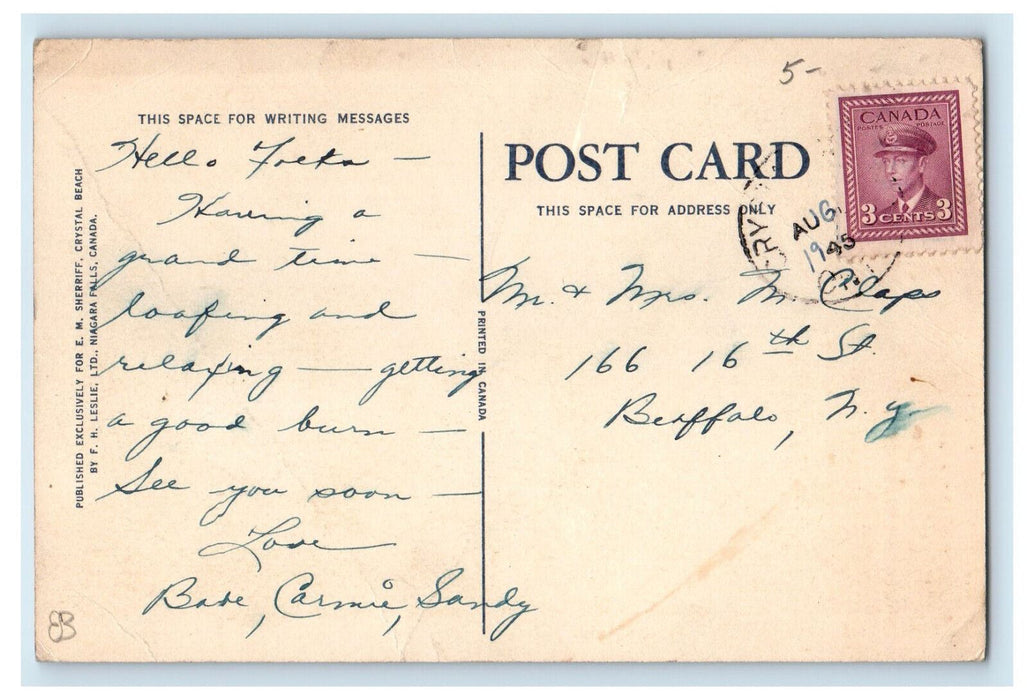 5-
THIS SPACE FOR WRITING MESSAGES
Hello Folks —
Having a
grand time —
loafing and
relaxing — getting
a good burn —
See you soon —
Love
Babe, Carmie, Sandy
PUBLISHED EXCLUSIVELY FOR E. M. SHERRIFF, CRYSTAL BEACH
BY F. H. LESLIE, LTD., NIAGARA FALLS, CANADA.
PRINTED IN CANADA
POST CARD
THIS SPACE FOR ADDRESS ONLY
CANADA
POSTES POSTAGE
3 CENTS 3
CRY
AUG
1945
Mr. & Mrs. M. Claps
166 16th St.
Buffalo, N.Y.